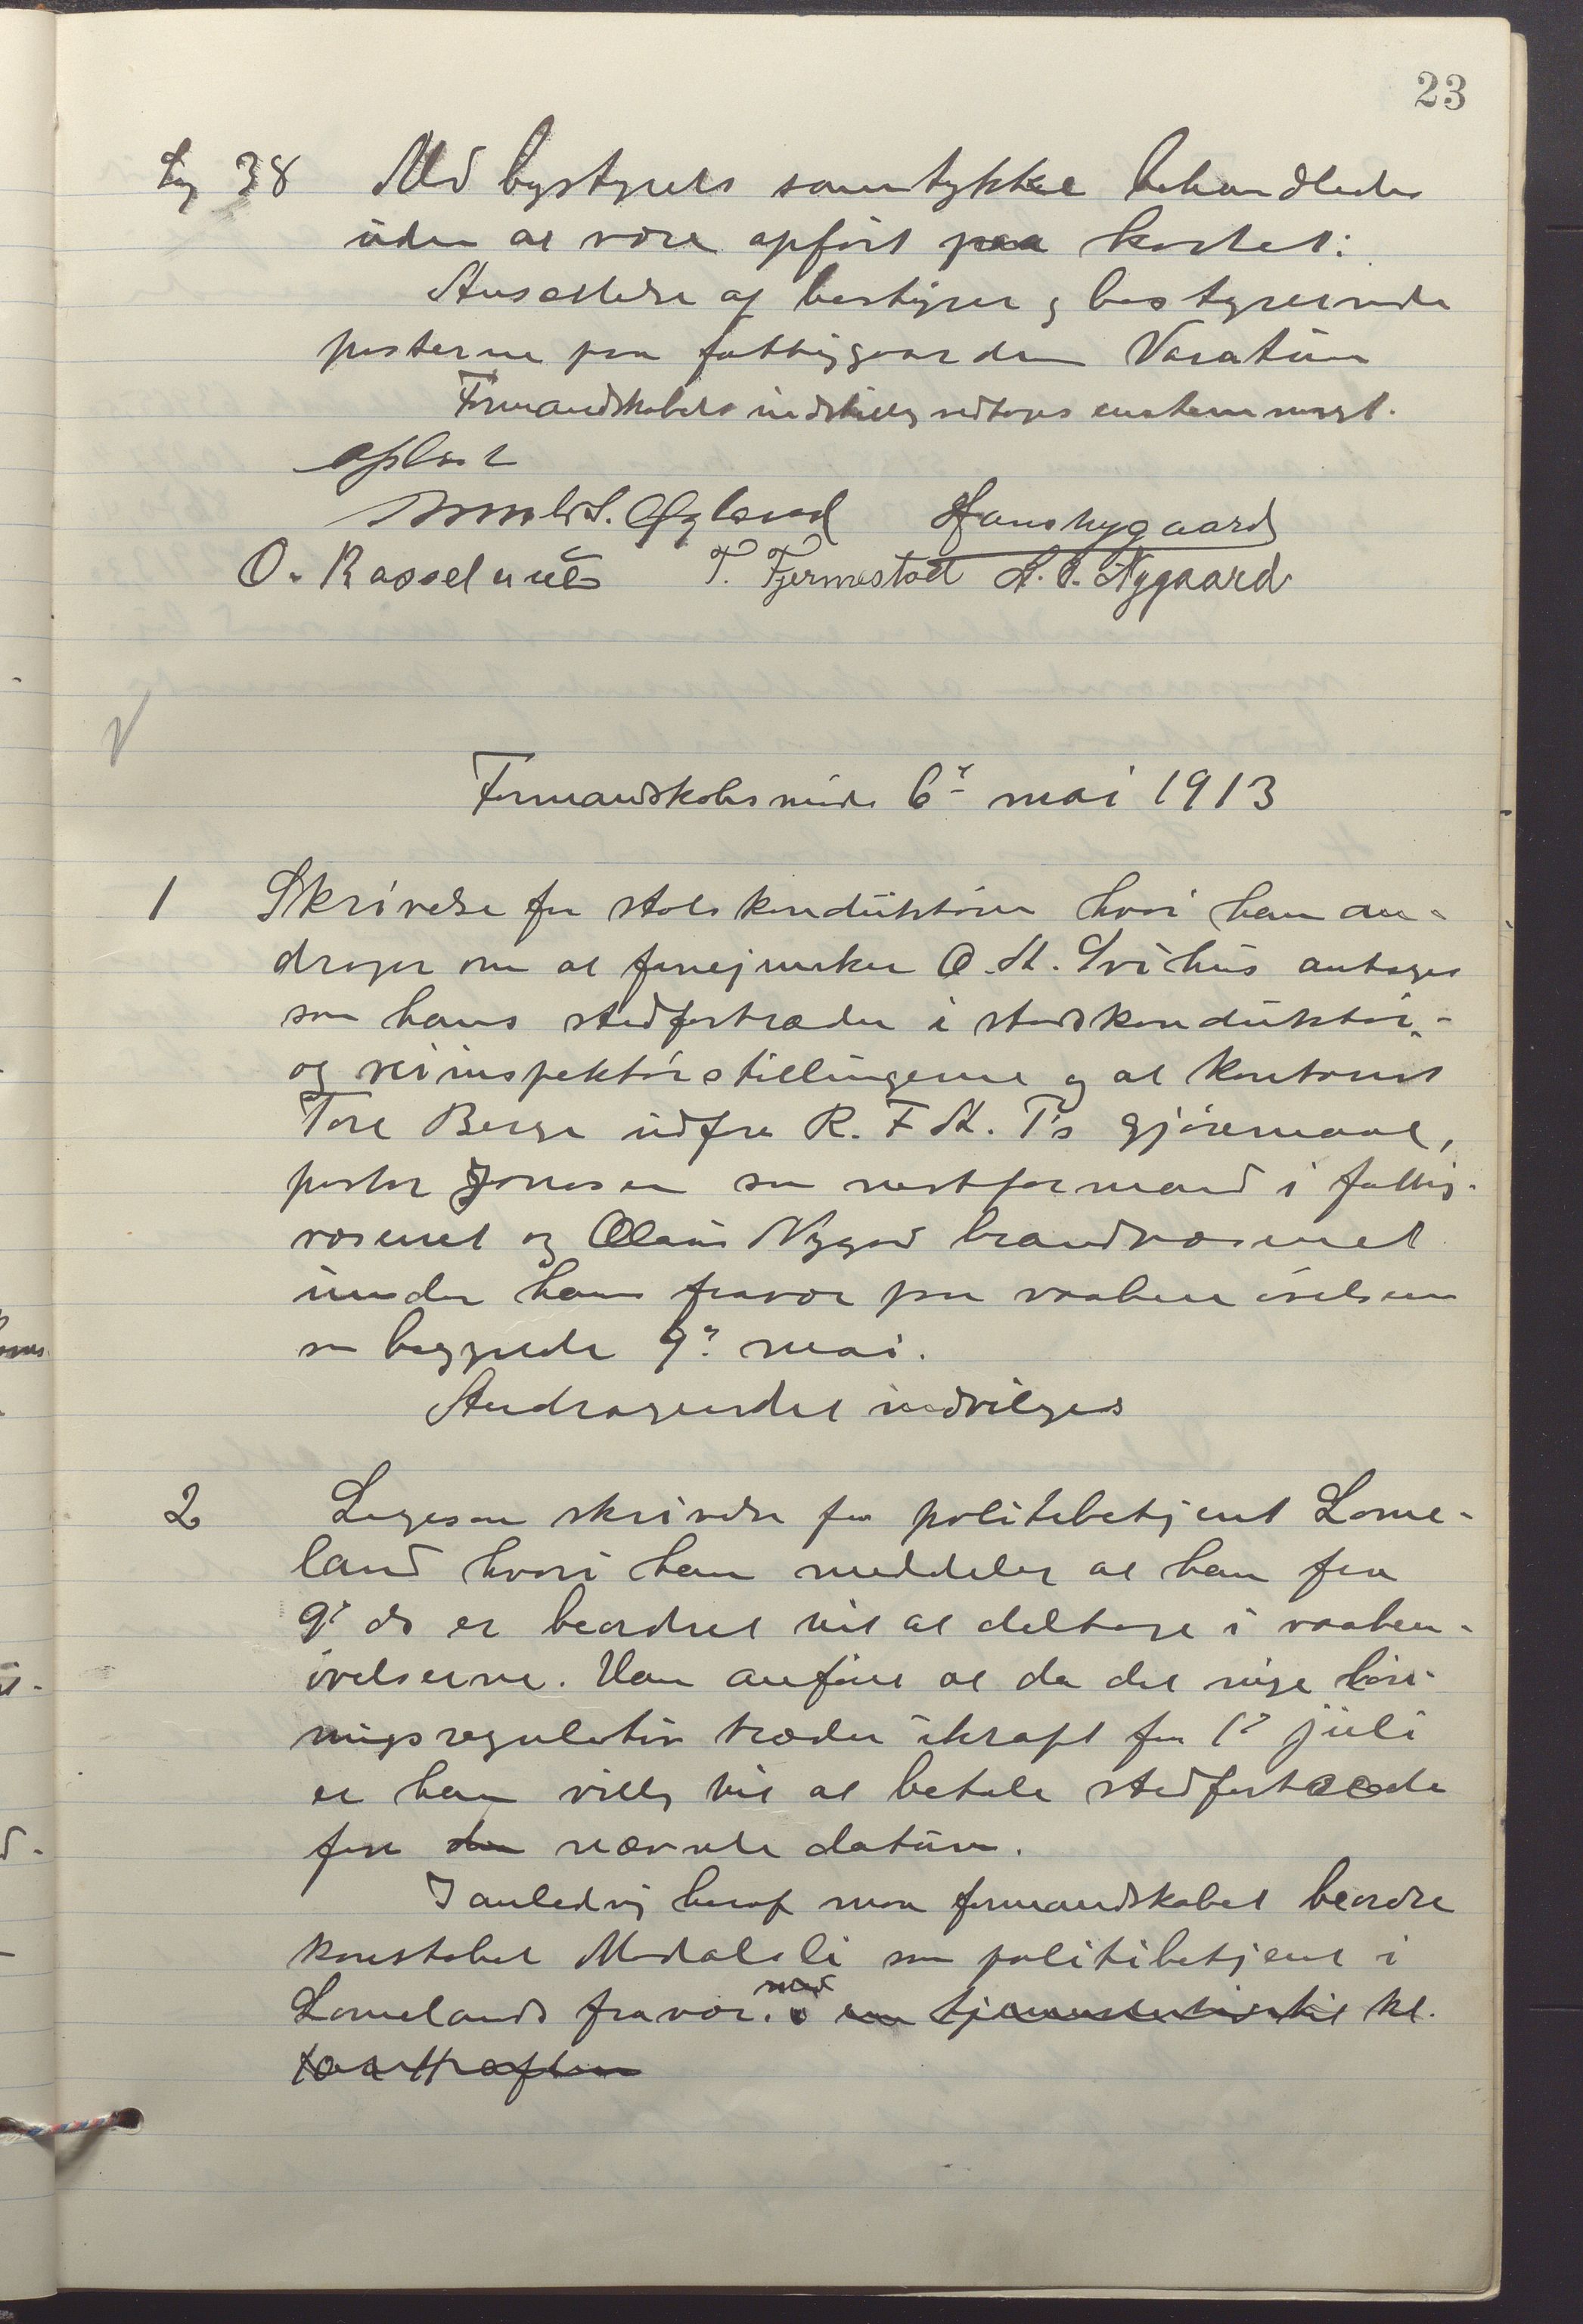 23
Sag 38 Med bystyrets samtykke behandledes
uden at være opført paa kartet:
Ansættelse af bestyrer og bestyrerinde
posterne paa fattiggaarden Varatun
Formandskabets indstilling vedtoges enstemmigt.
Oplæst
Ogland Hans Nygaard
O. Rasselnæs T. Tjermestad A. T. Nygaard
Formandskabsmøde 6te mai 1913
1 Skrivelse fra stadskonduktøren hvori han an-
drager om at fanejunker O. A. Svihus antages
som hans stedfortræder i stadskonduktør-
og veiinspektørstillingerne og at kontorist
Tore Berge udfører R. F. A. T's gjøremaal,
pastor Jonasen som næstformand i fattig-
væsenet og Olaus Nygaard brandvæsenet
under hans fravær paa vaabenøvelsen
som begynder 9de mai.
Andragendet indvilges
2 Læges en skrivelse fra politibetjent Lome-
land hvori han meddeler at han fra
9de ds er beordret til at deltage i vaaben-
øvelserne. Han anfører at da det nye løn-
ningsregulativ træder ikraft fra 1ste juli
er han villig til at betale stedfortræder
fra den nævnte datum.
I anledning heraf maa formandskabet beordre
konstabel Modalsli som politibetjent i
Lomelands fravær. med en tjenestetid til kl.